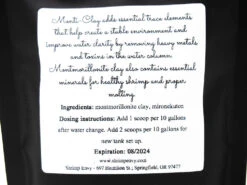 Monti-Clay adds essential trace elements
that help create a stable environment and
improve water clarity by removing heavy metals
and toxins in the water column.
Montmorillonite clay also contains essential
minerals for healthy shrimp and proper
molting.
Ingredients: montmorillonite clay, mironekuton
Dosing instructions: Add 1 scoop per 10 gallons
after water change. Add 2 scoops per 10 gallons for
new tank set up.
Expiration: 08/2024
www.shrimpenvy.com
Shrimp Envy - 697 Harrison St | Springfield, OR 97477